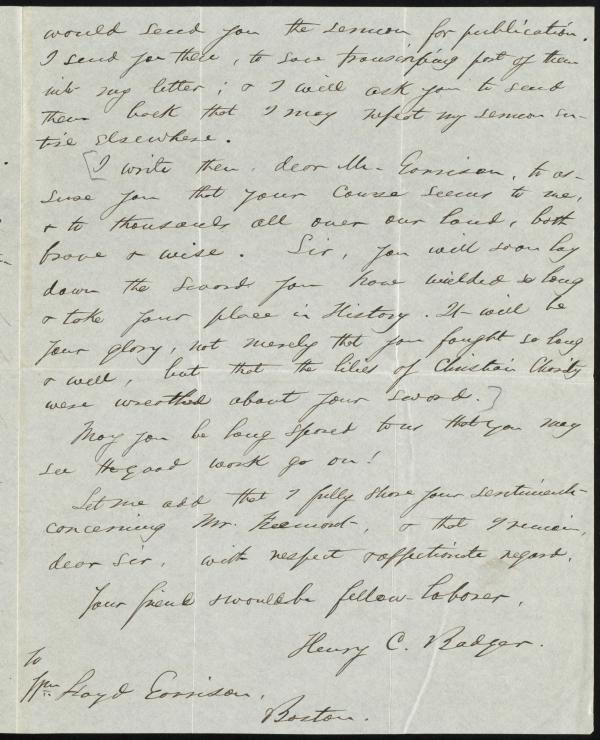 would send you the sermon for publication.
I send you them, to save transcribing part of them
into my letter; & I will ask you to send
them back that I may repeat my sermon en-
tire elsewhere.
[I write then, dear Mr. Garrison, to as-
sure you that your course seems to me,
& to thousands all over our land, both
brave & wise. Sir, you will soon lay
down the sword you have wielded so long
& take your place in History. It will be
your glory, not merely that you fought so long
& well, but that the lilies of Christian Charity
were wreathed about your sword.]
May you be long spared to us that you may
see the good work go on!
Let me add that I fully share your sentiments
concerning Mr. Freemont, & that I remain,
dear Sir, with respect & affectionate regard,
Your friend & would be fellow-laborer,
Henry C. Badger.
To
Wm. Lloyd Garrison,
Boston.